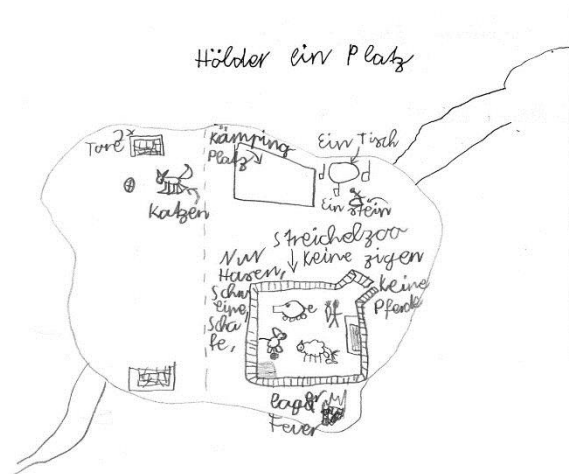 Hölder ein Platz
2x
Tore
Kämping
Platz
Ein Tisch
Katzen
Ein stein
Streichelzoo
Nur
Hasen,
Schw
eine,
Scha
fe,
keine zigen
keine
Pferde
lager
Feuer